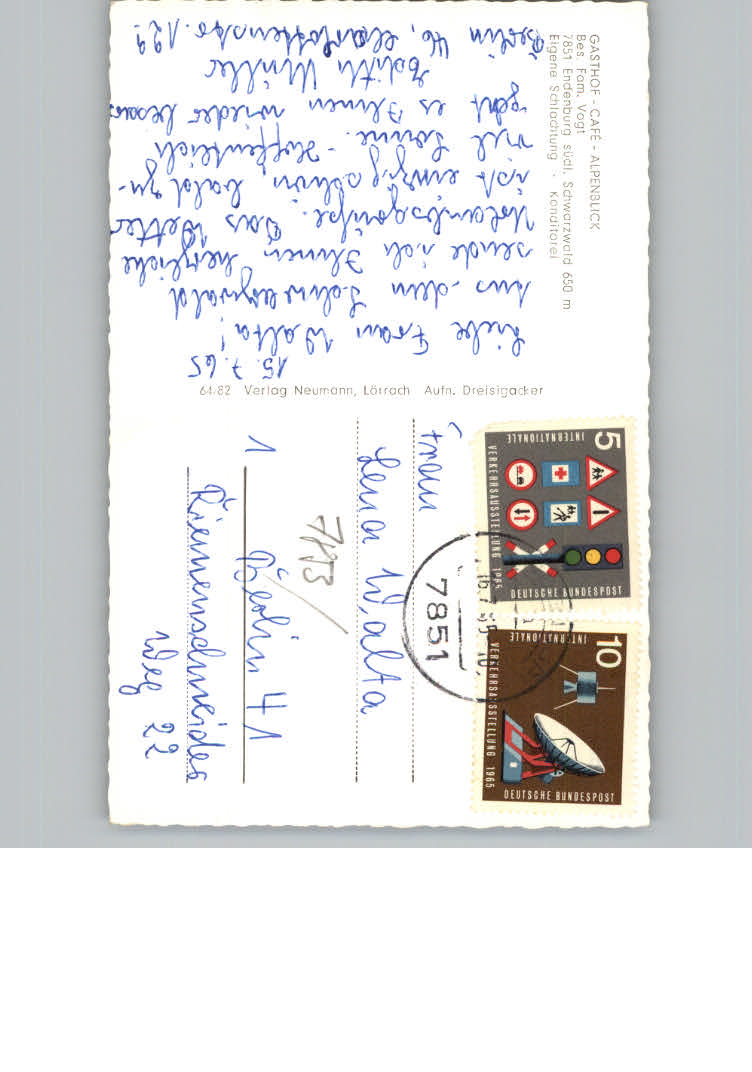 GASTHOF - CAFÉ - ALPENBLICK
Bes. Fam. Vogt
7851 Endenburg südl. Schwarzwald 650 m
Eigene Schlachtung · Konditorei
15.7.65
Liebe Frau Walta!
Aus dem Schwarzwald
sende ich Ihnen herzliche
Urlaubsgrüße. Das Wetter
ist einzig schön; bald zu-
viel Sonne. - Hoffentlich
geht es Ihnen wieder besser
Edith Müller
Berlin 46, Charlottenstr. 129
64/82 Verlag Neumann, Lörrach Aufn. Dreisigacker
5
INTERNATIONALE
VERKEHRSAUSSTELLUNG 1965
DEUTSCHE BUNDESPOST
10
INTERNATIONALE
VERKEHRSAUSSTELLUNG 1965
DEUTSCHE BUNDESPOST
7851
Frau
Lena Walta
1 Berlin 41
Riemenschneider
Weg 22